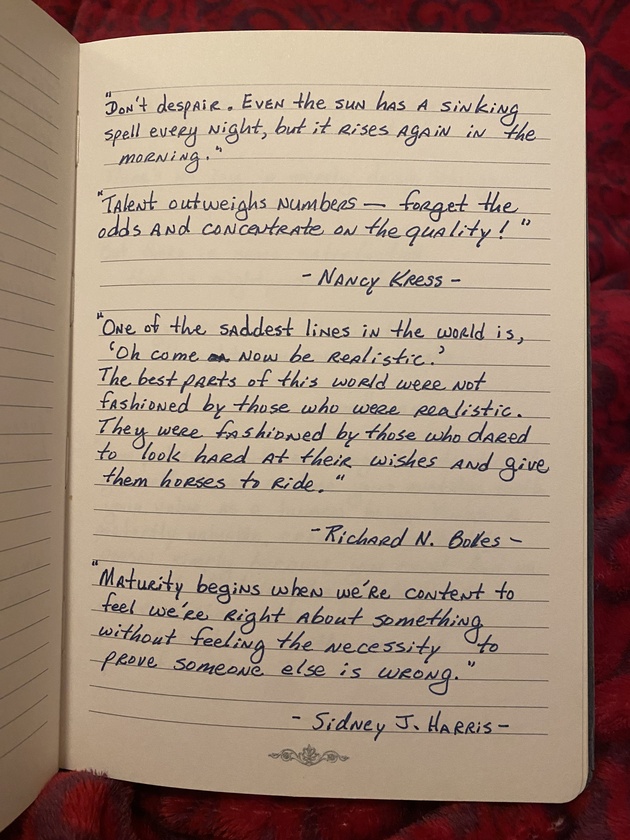 "Don't despair. Even the sun has a sinking
spell every night, but it rises again in the
morning."
"Talent outweighs numbers — forget the
odds and concentrate on the quality!"
- Nancy Kress -
"One of the saddest lines in the world is,
'Oh come now be realistic.'
The best parts of this world were not
fashioned by those who were realistic.
They were fashioned by those who dared
to look hard at their wishes and give
them horses to ride."
- Richard N. Bolles -
"Maturity begins when we're content to
feel we're right about something
without feeling the necessity to
prove someone else is wrong."
- Sidney J. Harris -